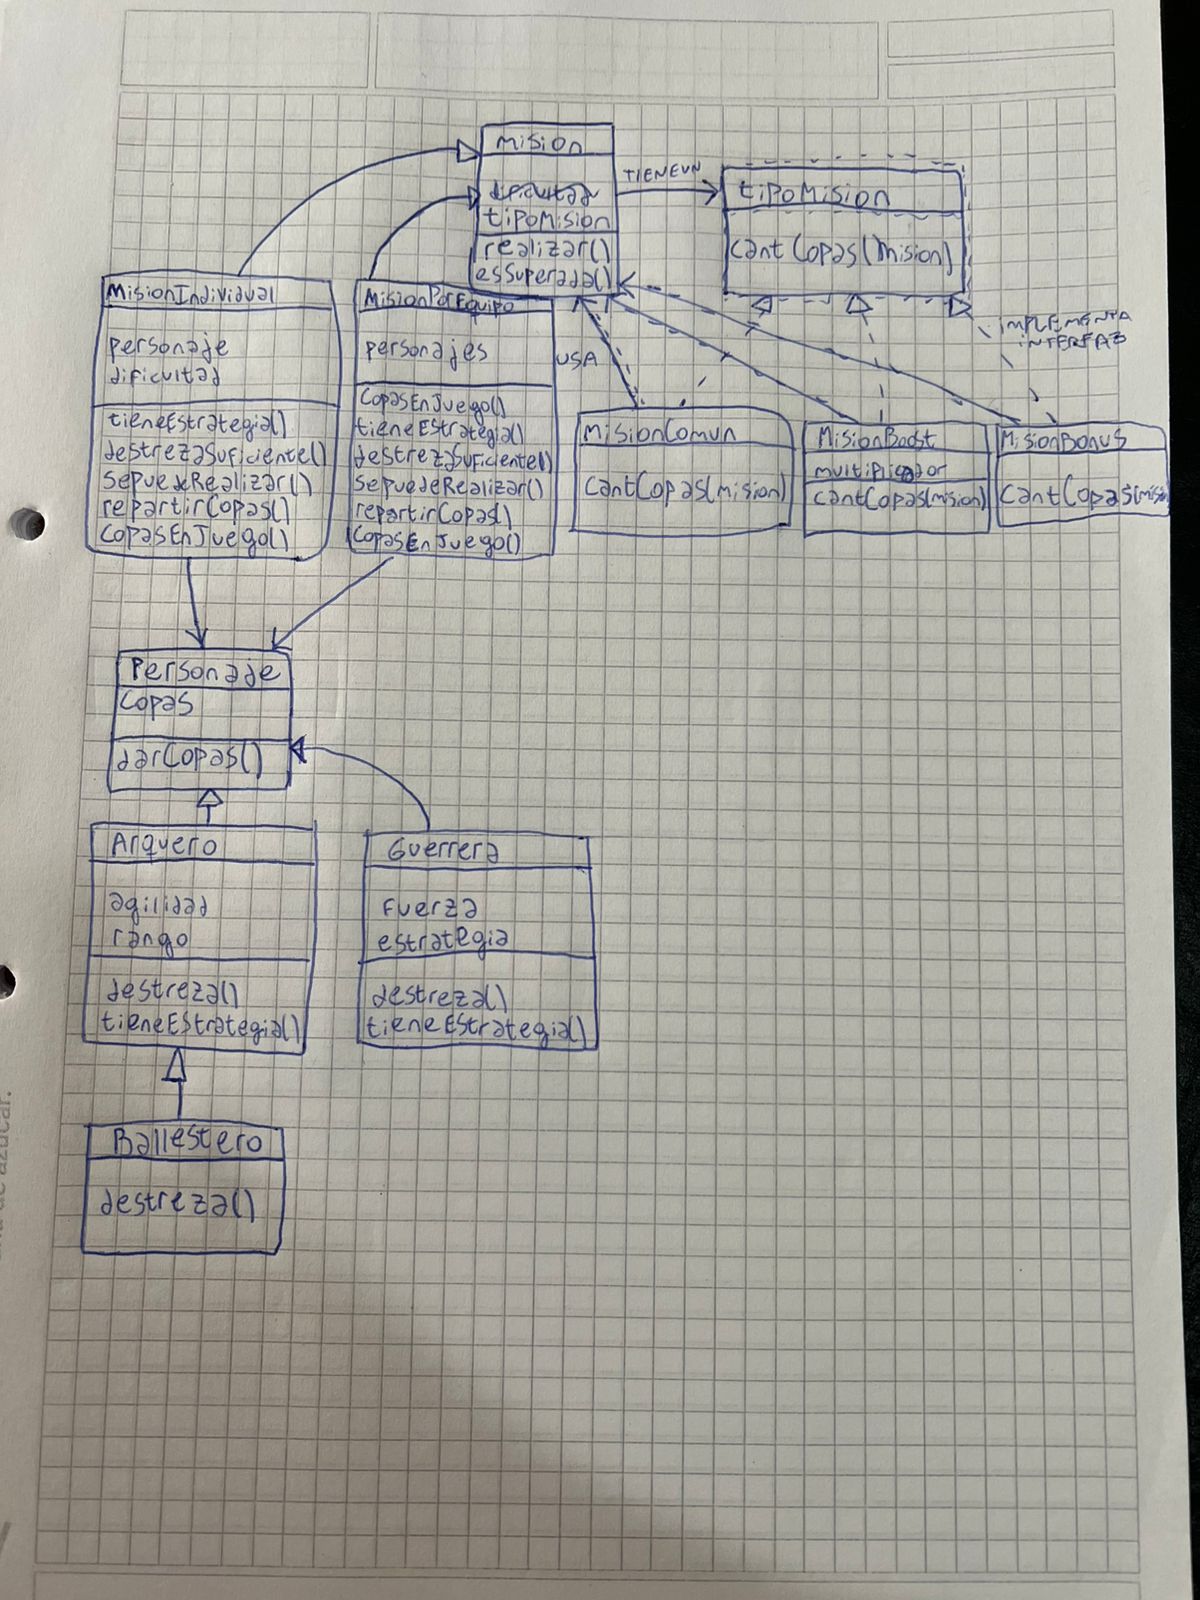 Mision
dificultad
tipoMision
realizar()
esSuperada()
TIENE UN
tipoMision
cantCopas(Mision)
IMPLEMENTA
INTERFAZ
USA
MisionIndividual
personaje
dificultad
tieneEstrategia()
destrezaSuficiente()
sepuedeRealizar()
repartirCopas()
copasEnJuego()
MisionPorEquipo
personajes
CopasEnJuego()
tieneEstrategia()
destrezaSuficiente()
sepuedeRealizar()
repartirCopas()
CopasEnJuego()
MisionComun
cantCopas(mision)
MisionBoost
multiplicador
cantCopas(mision)
MisionBonus
cantCopas(misi
Personaje
Copas
darCopas()
Arquero
agilidad
rango
destreza()
tieneEstrategia()
Guerrera
Fuerza
estrategia
destreza()
tieneEstrategia()
Ballestero
destreza()
de azúcar.